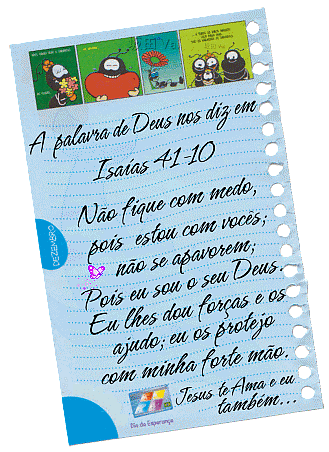 A palavra de Deus nos diz em
Isaías 41-10
Não fique com medo,
pois estou com vocês;
não se apavorem;
Pois eu sou o seu Deus.
Eu lhes dou forças e os
ajudo; eu os protejo
com minha forte mão.
Jesus te Ama e eu
também...
DEZEMBRO
Dia da Esperança